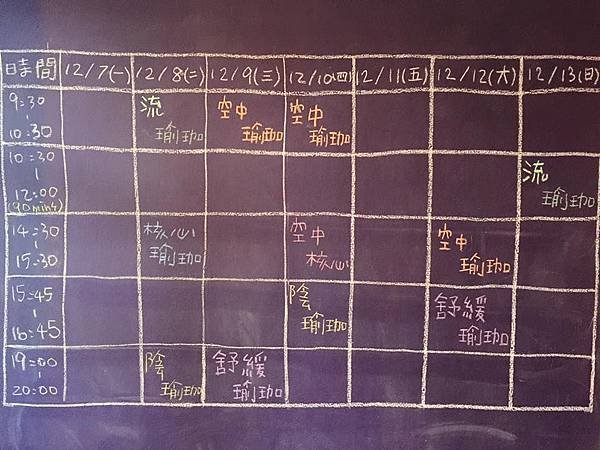 時間 12/7(一) 12/8(二) 12/9(三) 12/10(四) 12/11(五) 12/12(六) 12/13(日)
9:30 流 空中 空中
| 瑜珈 瑜珈 瑜珈
10:30
10:30
| 流
12:00 瑜珈
(90mins)
14:30 核心 空中 空中
| 瑜珈 核心 瑜珈
15:30
15:45 陰 舒緩
| 瑜珈 瑜珈
16:45
19:00 陰 舒緩
| 瑜珈 瑜珈
20:00